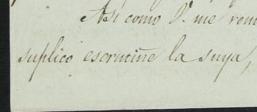 Así como V. me rem
suplico escrutiñe la suya,